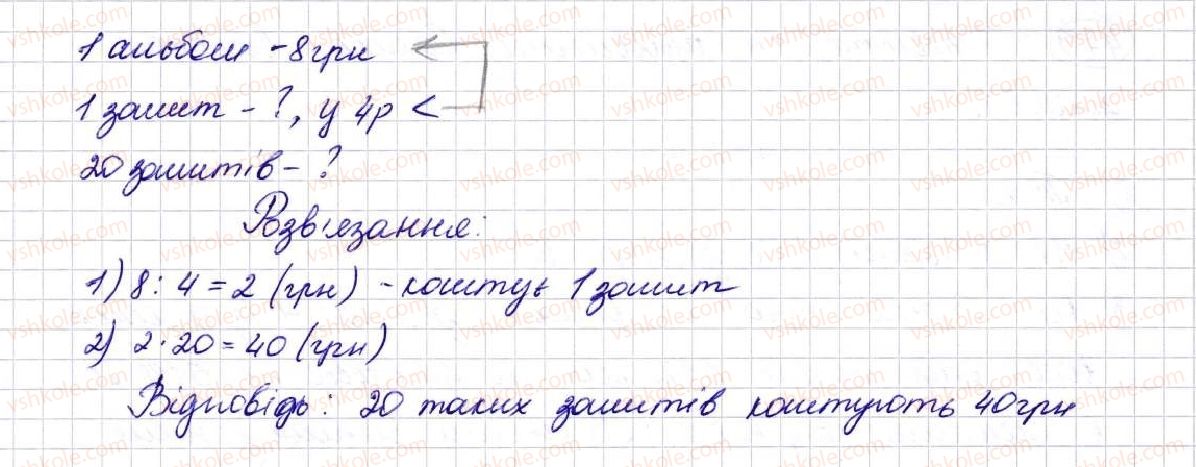 1 альбом - 8 грн
1 зошит - ?, у 4р <
20 зошитів - ?
Розв'язання:
1) 8 : 4 = 2 (грн) - коштує 1 зошит
2) 2 · 20 = 40 (грн)
Відповідь: 20 таких зошитів коштують 40 грн
vshkole.com